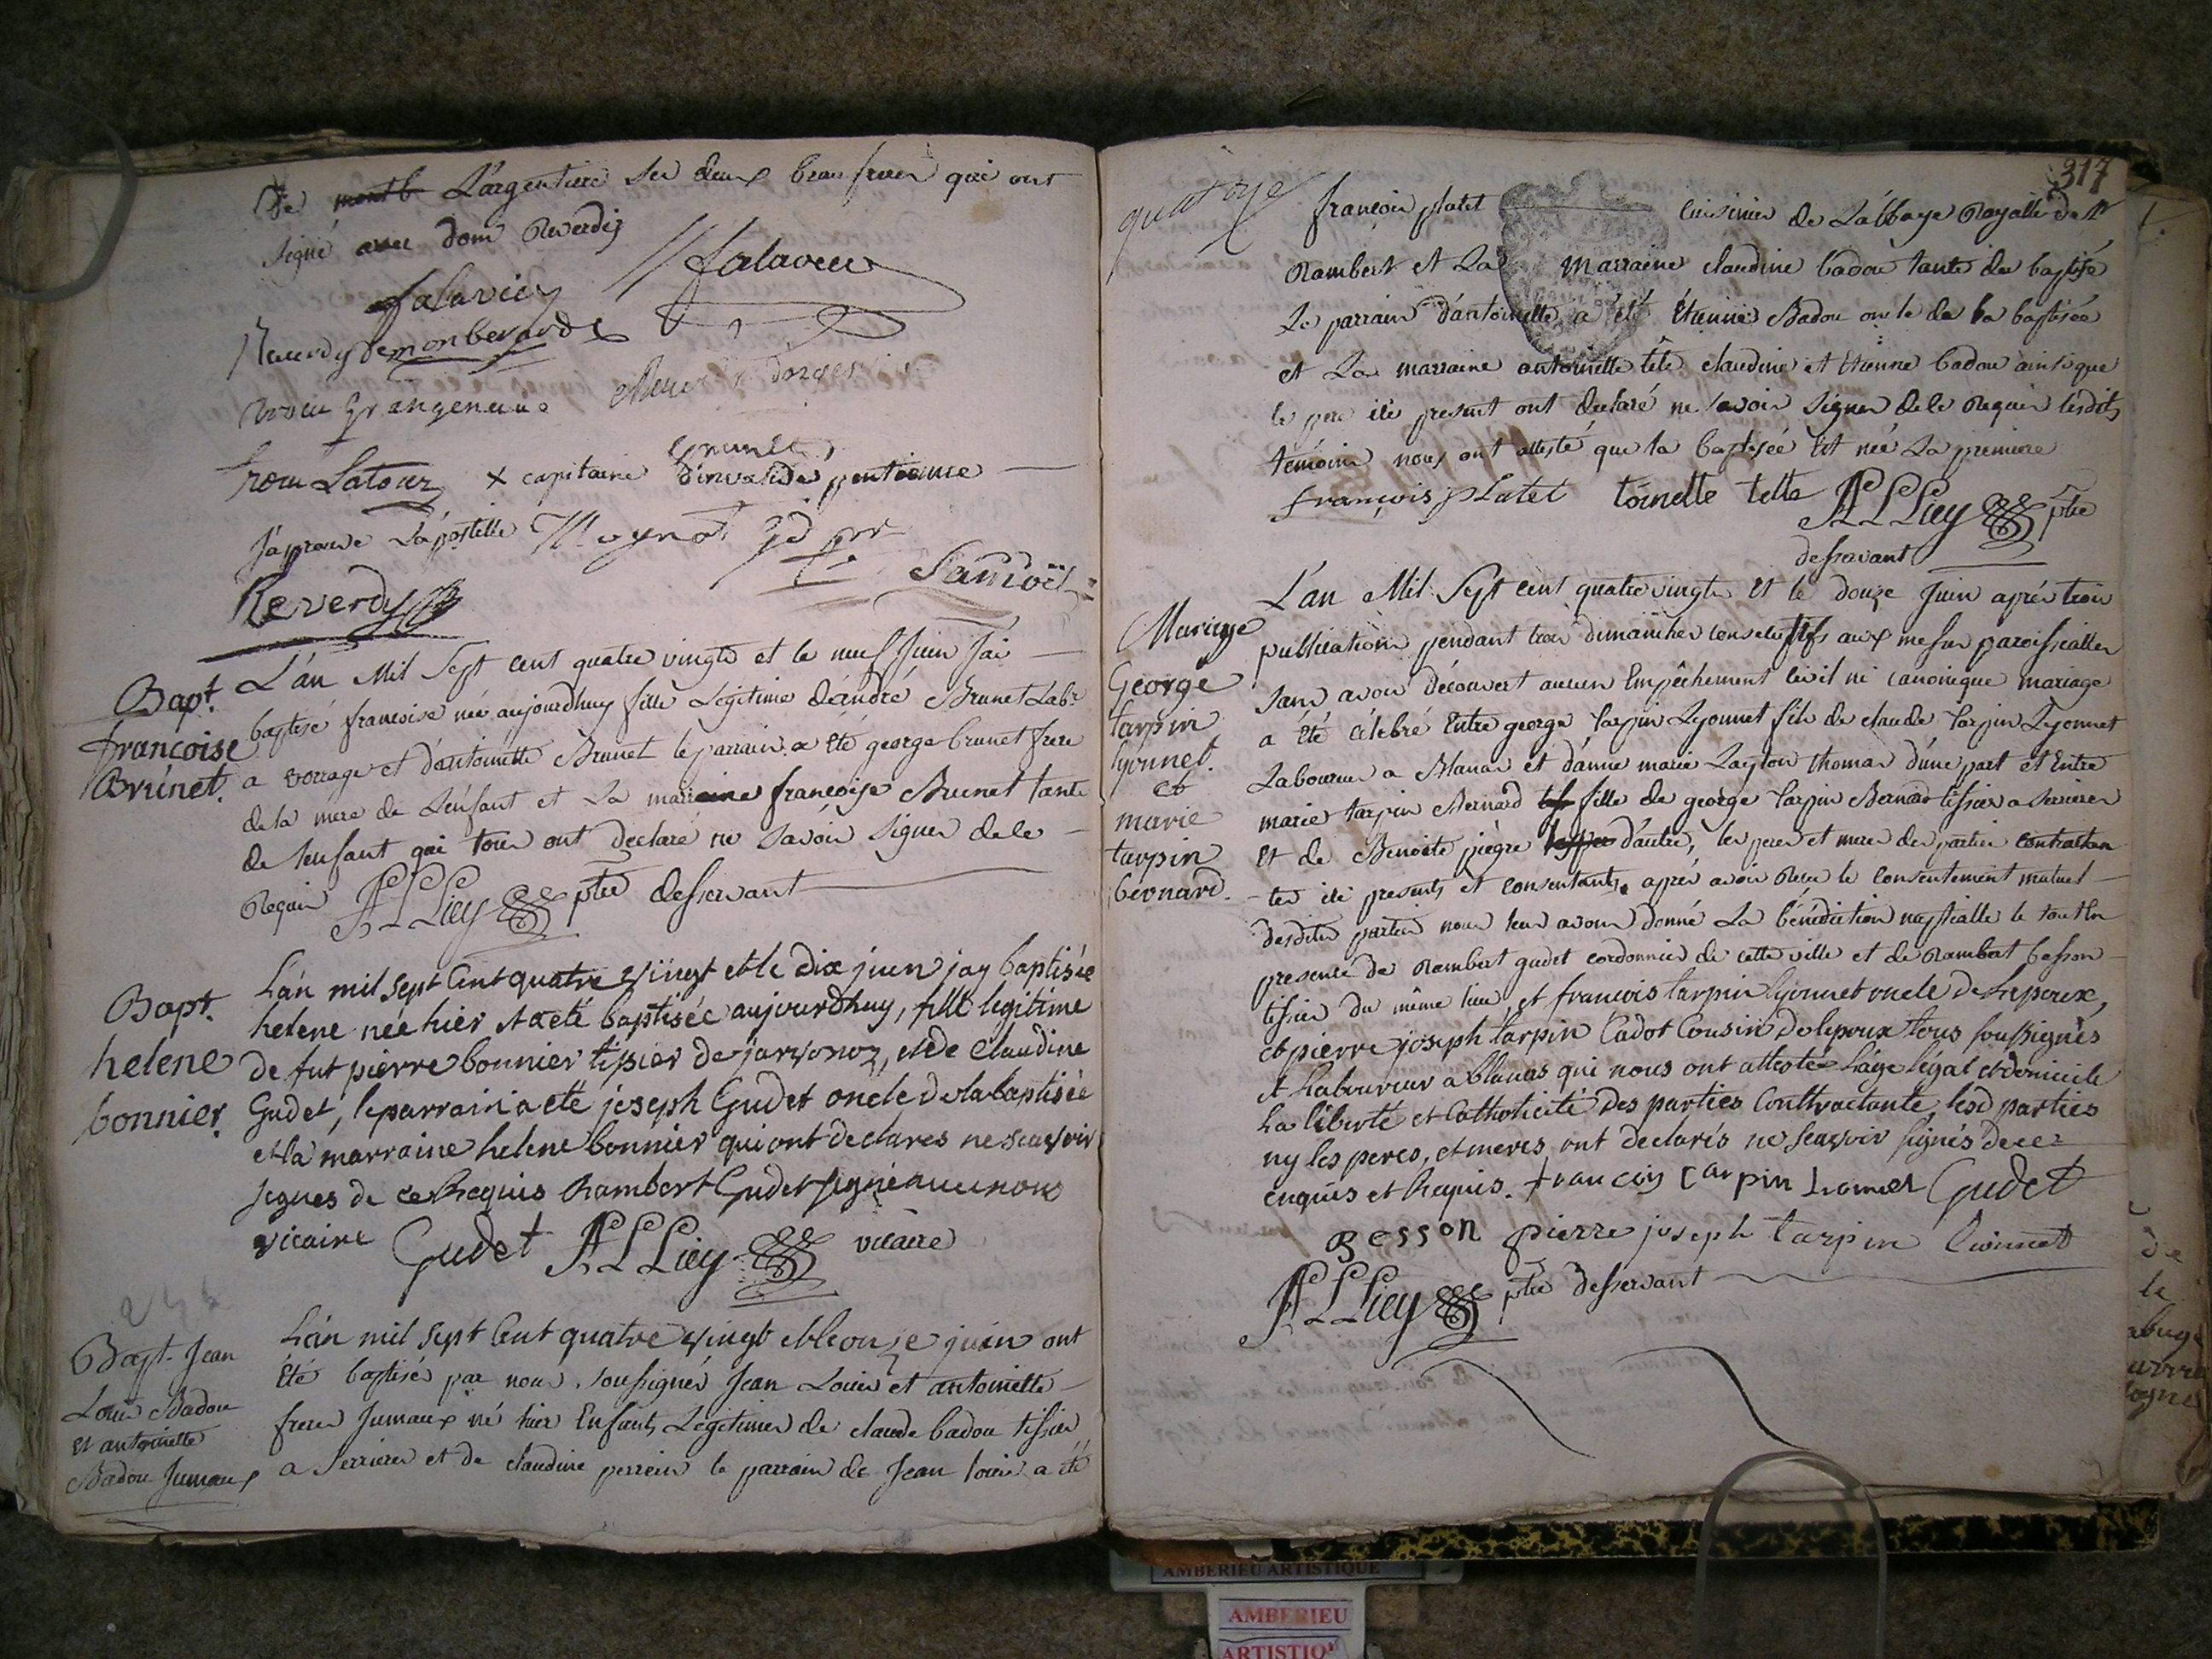 De montb L'argentiere ses deux beaufreres qui ont
signé avec dom Reverdis
falavier
falavier
Reverdy Demonberard
trocu grangeneuve
brunet
trocu Latour x capitaine d'invalide pentionne
J'aprouve L'apostille
Reverdy
Samoël
Bapt.
francoise
Brunet.
L'an Mil Sept cent quatre vingts et le neuf Juin J'ai
baptisé francoise née aujourdhuy fille Légitime d'andré Brunet Labr
a vorrage et d'antoinette Brunet le parrain a été george brunet frere
de la mere de L'enfant et La marraine françoise Brunet tante
de l'enfant qui tous ont declaré ne savoir signer de ce
Requis ALLiey ptre desservant
Bapt.
helene
bonnier.
L'an mil sept Cent quatre vingt et le dix juin jay baptisée
helene née hier et a eté baptisée aujourdhuy, fille legitime
de fut pierre bonnier tissier de jarvonoz, et de Claudine
Gudet, le parrain a eté joseph Gudet oncle de la baptisée
et la marraine helene bonnier qui ont declarés ne scavoir
signes de ce Requis Rambert Gudet signé avec nous
vicaire Gudet ALLiey vicaire
Bapt. Jean
Louis Badou
Et antoinette
Badou Jumaux
L'an mil sept Cent quatre vingt et le onze juin ont
Eté baptisés par nous soussignés Jean Louis et antoinette
freres Jumaux né hier Enfants Légitimes de claude badou tissier
a Serrieres et de claudine perrein le parrain de Jean louis a été
317
quatorze
françois platet cuisinier de L'abbaye Royalle de st
Rambert et La Marraine claudine badou tante du baptisé
Le parrain d'antoinette a été Etienne Badou oncle de la baptisée
et La marraine antoinette tête claudine et Etienne badou ainsi que
le pere ici present ont declaré ne savoir signer de ce Requis lesdits
témoins nous ont attesté que la baptisée Est née La premiere
françois pLatet toinette tette ALLiey ptre
desservant
Mariage
George
tarpin
lyonnet.
et
marie
tarpin
bernard.
L'an Mil Sept cent quatre vingts Et le douze Juin après trois
publications pendant trois dimanches consecutifs aux messes paroissialles
sans avoir découvert aucun Empêchement Civil ni canonique mariage
a été célebré Entre george tarpin Lyonnet fils de claude tarpin Lyonnet
Laboureur a Blanas et d'anne marie Laylou thomas d'une part et Entre
marie tarpin Bernard fille de george tarpin Bernard tissier a serrieres
Et de Benoite piegre d'autre, les peres et meres des parties contractan
tes ici presents et consentants après avoir Recu le consentement mutuel
desdites parties nous leur avons donné La bénédiction nuptialle le tout En
presence de Rambert gudet cordonnier de cette ville et de Rambert besson
tissier du même lieu et francois tarpin lyonnet oncle de Lepoux,
et pierre joseph tarpin Cadot Cousin de lepoux tous soussignés
et Laboureur a blanas qui nous ont attestés L'age légal et domicile
La liberté et Catholicité Des parties Contractante, lesd parties
ny les peres, et meres ont declarés ne scavoir signés de ce
enquis et Requis. francois tarpin Lionnet Gudet
Besson pierre joseph tarpin lionnet
ALLiey ptre desservant
AMBERIEU ARTISTIQUE
AMBERIEU
ARTISTIQ